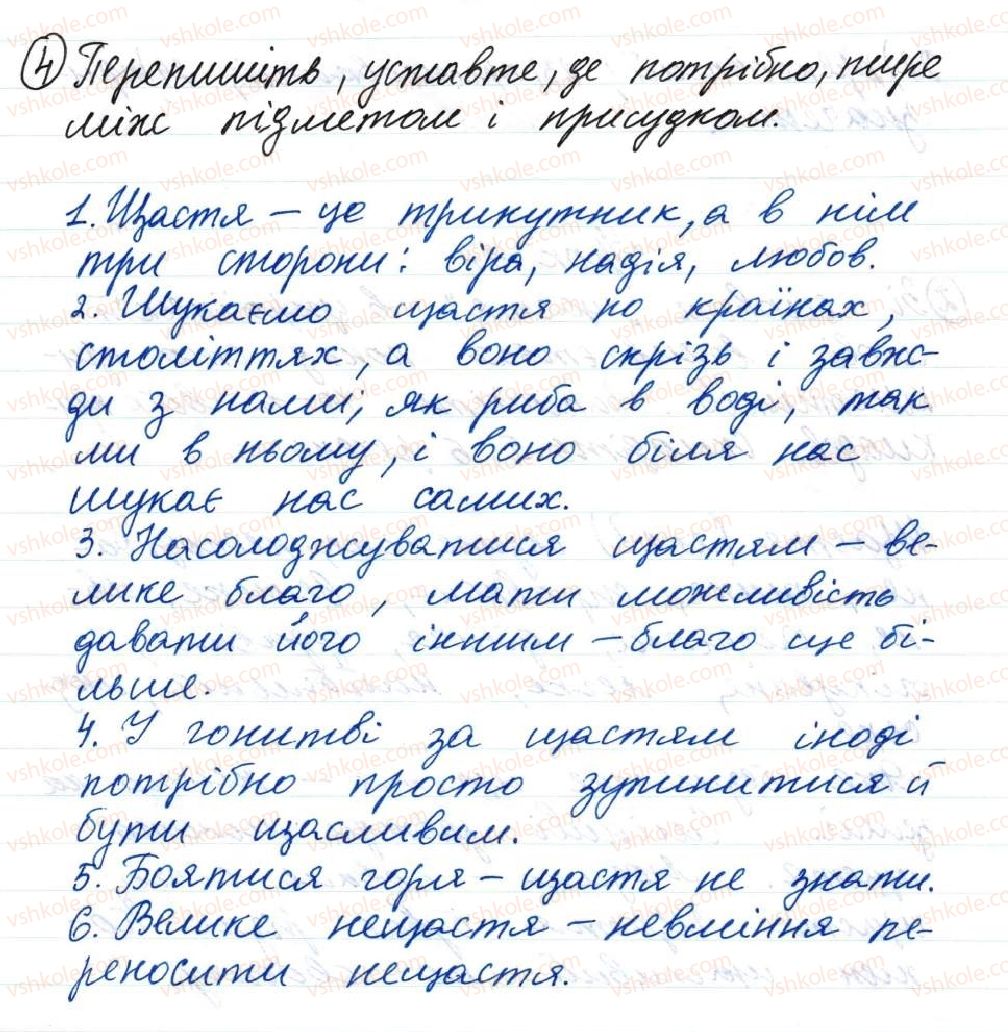 ④ Перепишіть, уставте, де потрібно, тире
між підметом і присудком.
1. Щастя – це трикутник, а в нім
три сторони: віра, надія, любов.
2. Шукаємо щастя по країнах,
століттях, а воно скрізь і завж-
ди з нами; як риба в воді, так
ми в ньому, і воно біля нас
шукає нас самих.
3. Насолоджуватися щастям – ве-
лике благо, мати можливість
давати його іншим – благо ще бі-
льше.
4. У гонитві за щастям іноді
потрібно просто зупинитися й
бути щасливим.
5. Боятися горя – щастя не знати.
6. Велике нещастя – невміння пе-
реносити нещастя.